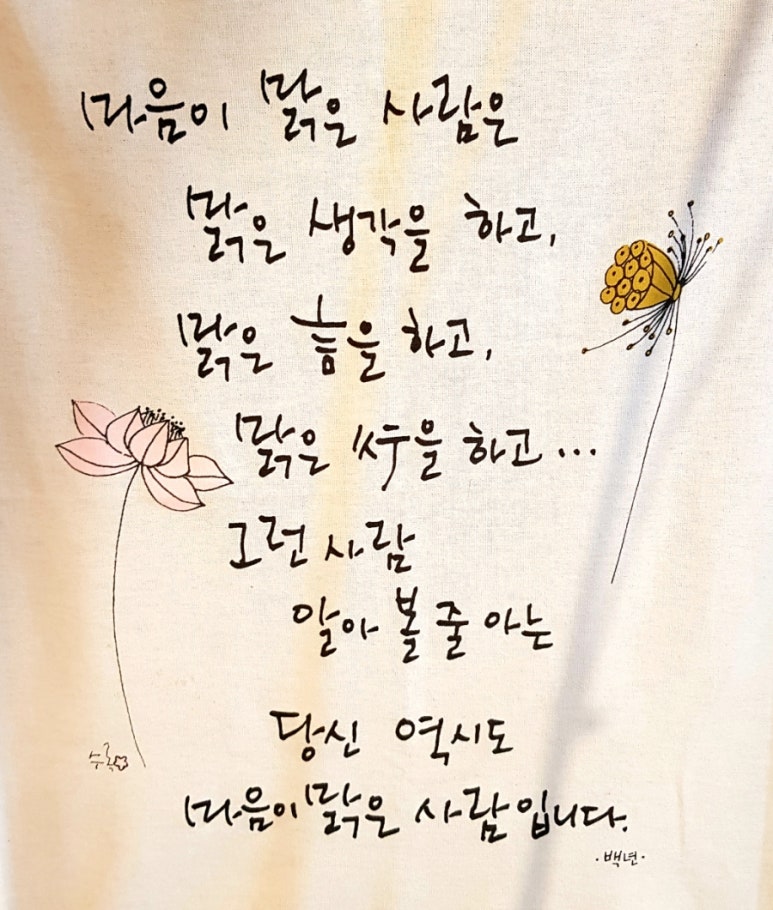 마음이 맑은 사람은
맑은 생각을 하고,
맑은 言을 하고,
맑은 行을 하고...
그런 사람
알아 볼 줄 아는
당신 역시도
마음이 맑은 사람입니다.
·백년·